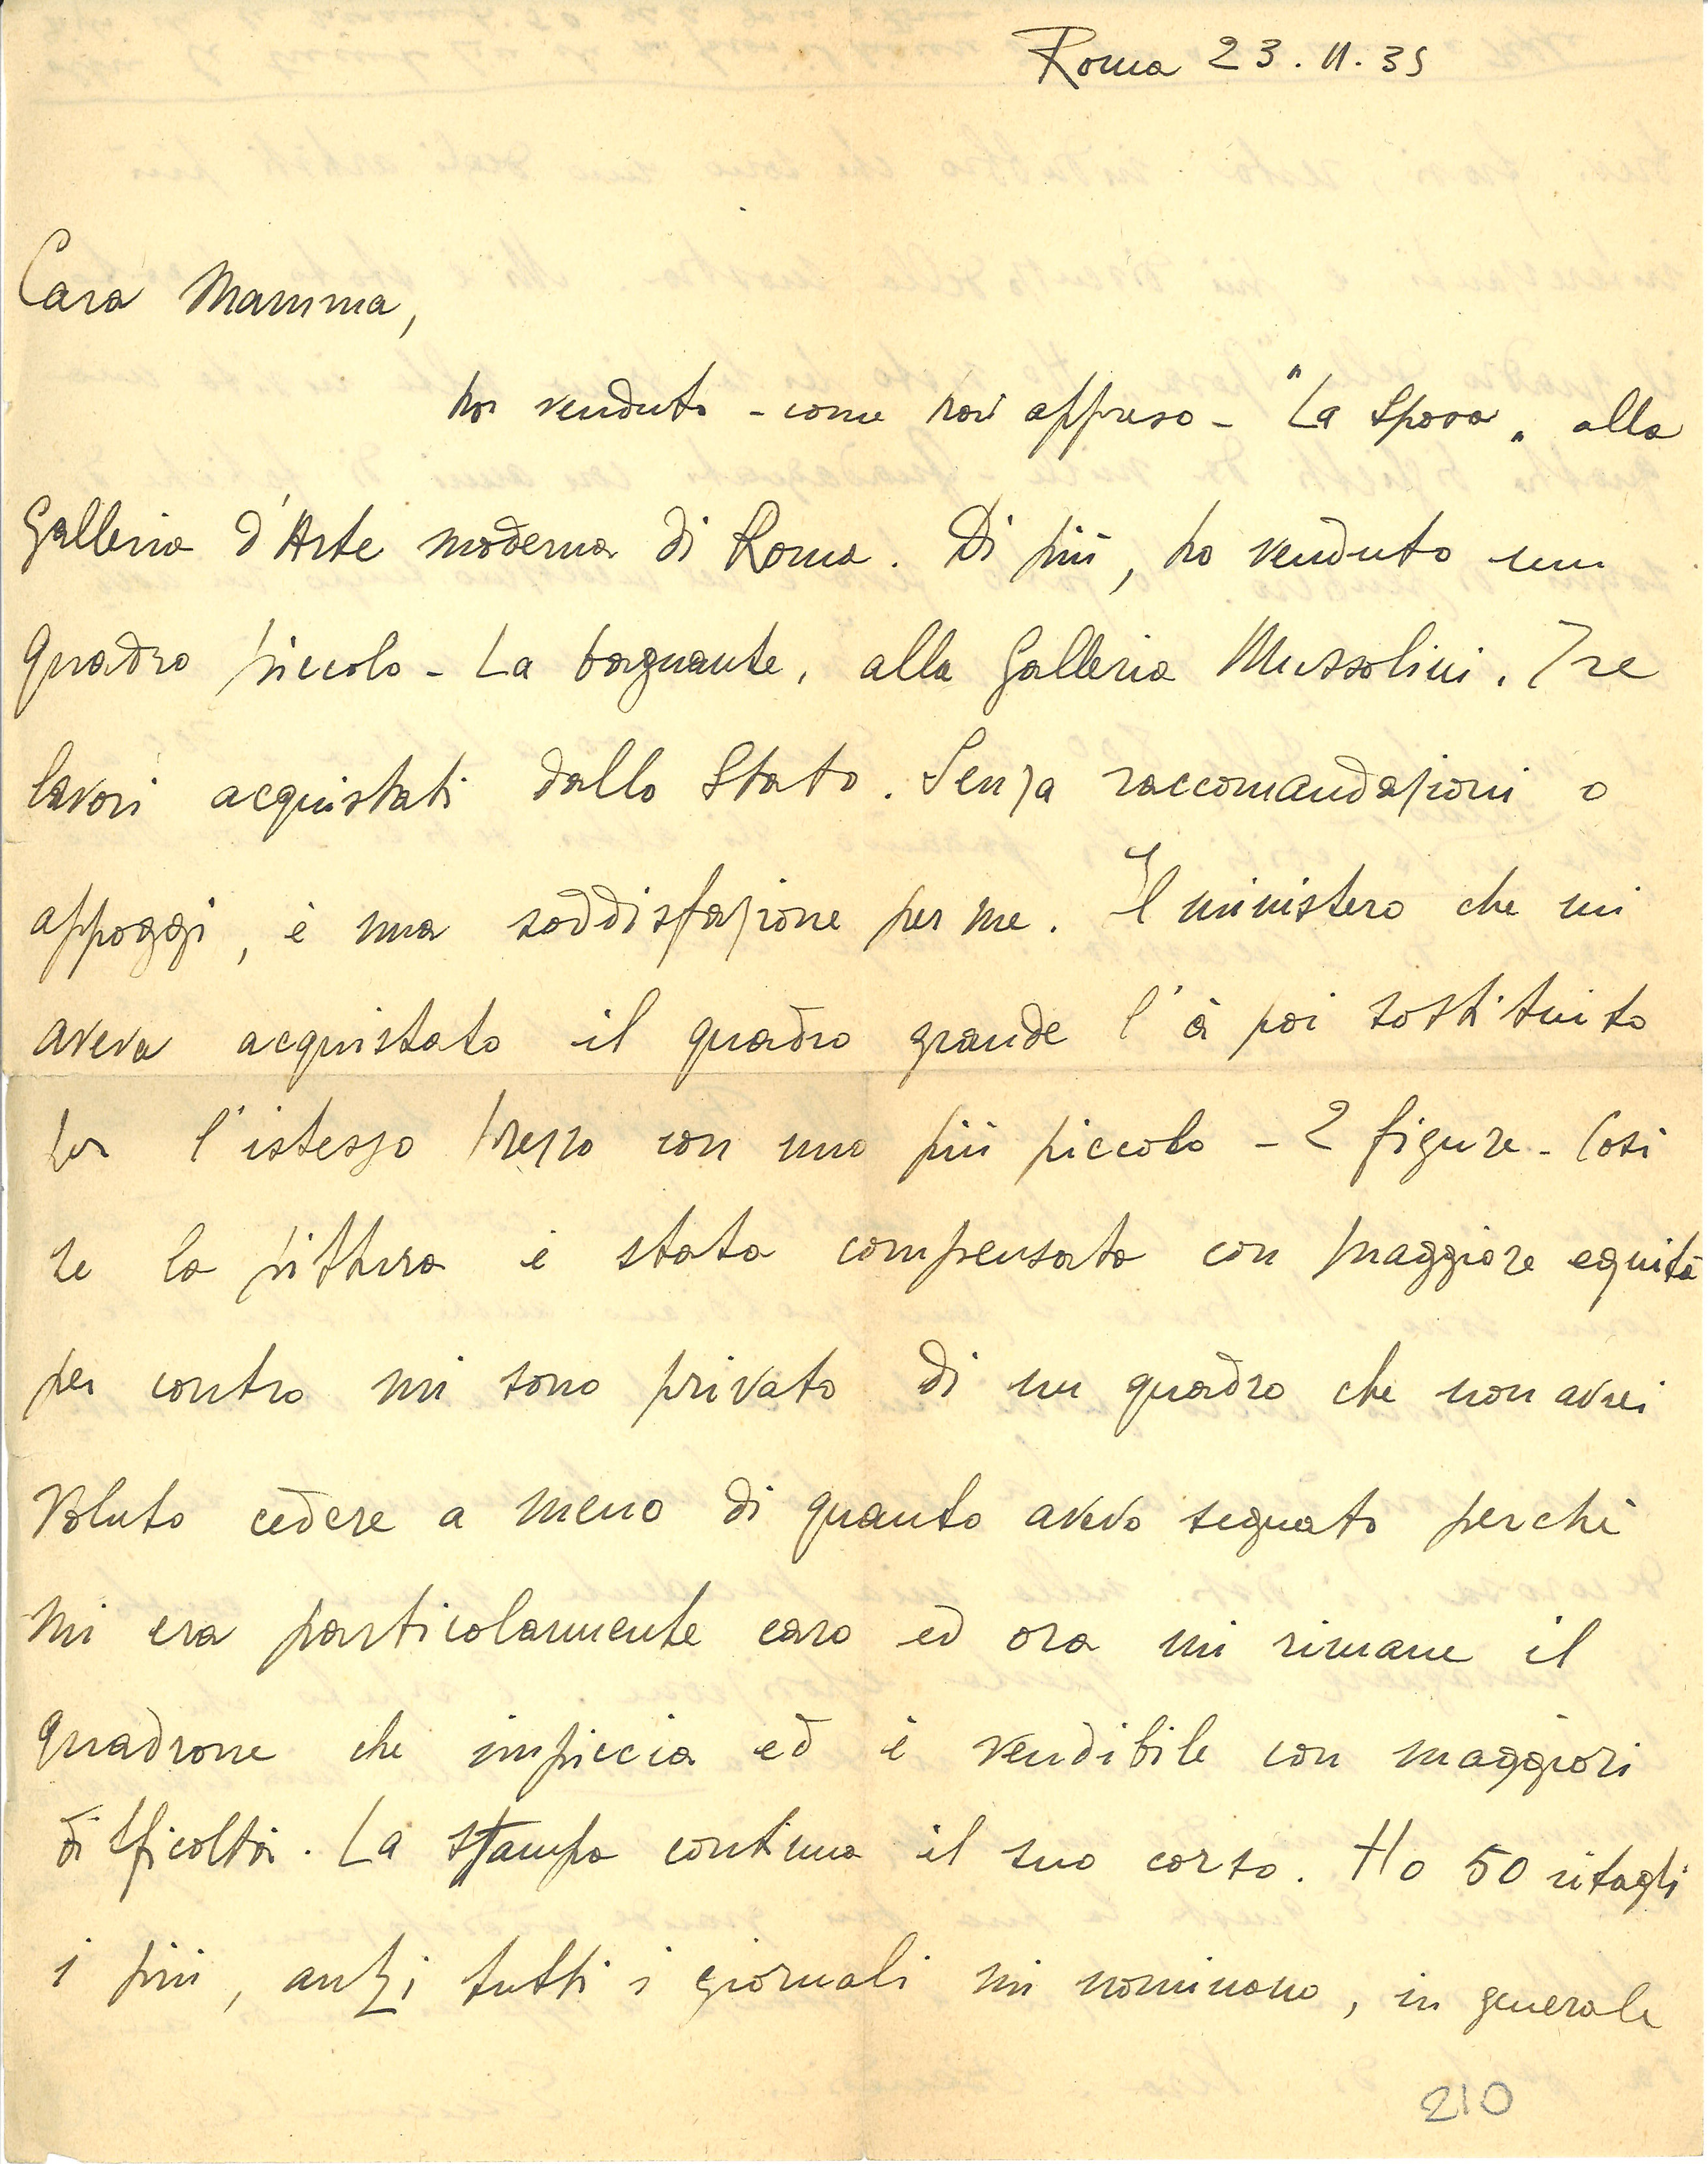 Roma 23.11.35
Cara Mamma,
ho venduto - come hai appreso - "La Sposa" alla
Galleria d'Arte moderna di Roma. Di più, ho venduto un
quadro piccolo - La bagnante, alla Galleria Mussolini. Tre
lavori acquistati dallo Stato. Senza raccomandazioni o
appoggi, è una soddisfazione per me. Il ministero che mi
aveva acquistato il quadro grande l'à poi sostituito
per l'istesso prezzo con uno più piccolo - 2 figure - Così
se la pittura è stata compensata con maggiore equità
per contro mi sono privato di un quadro che non avrei
voluto cedere a meno di quanto avevo segnato perchè
mi era particolarmente caro ed ora mi rimane il
quadrone che impiccia ed è vendibile con maggiori
difficoltà. La stampa continua il suo corso. Ho 50 ritagli
i più, anzi tutti i giornali mi nominano, in generale
210